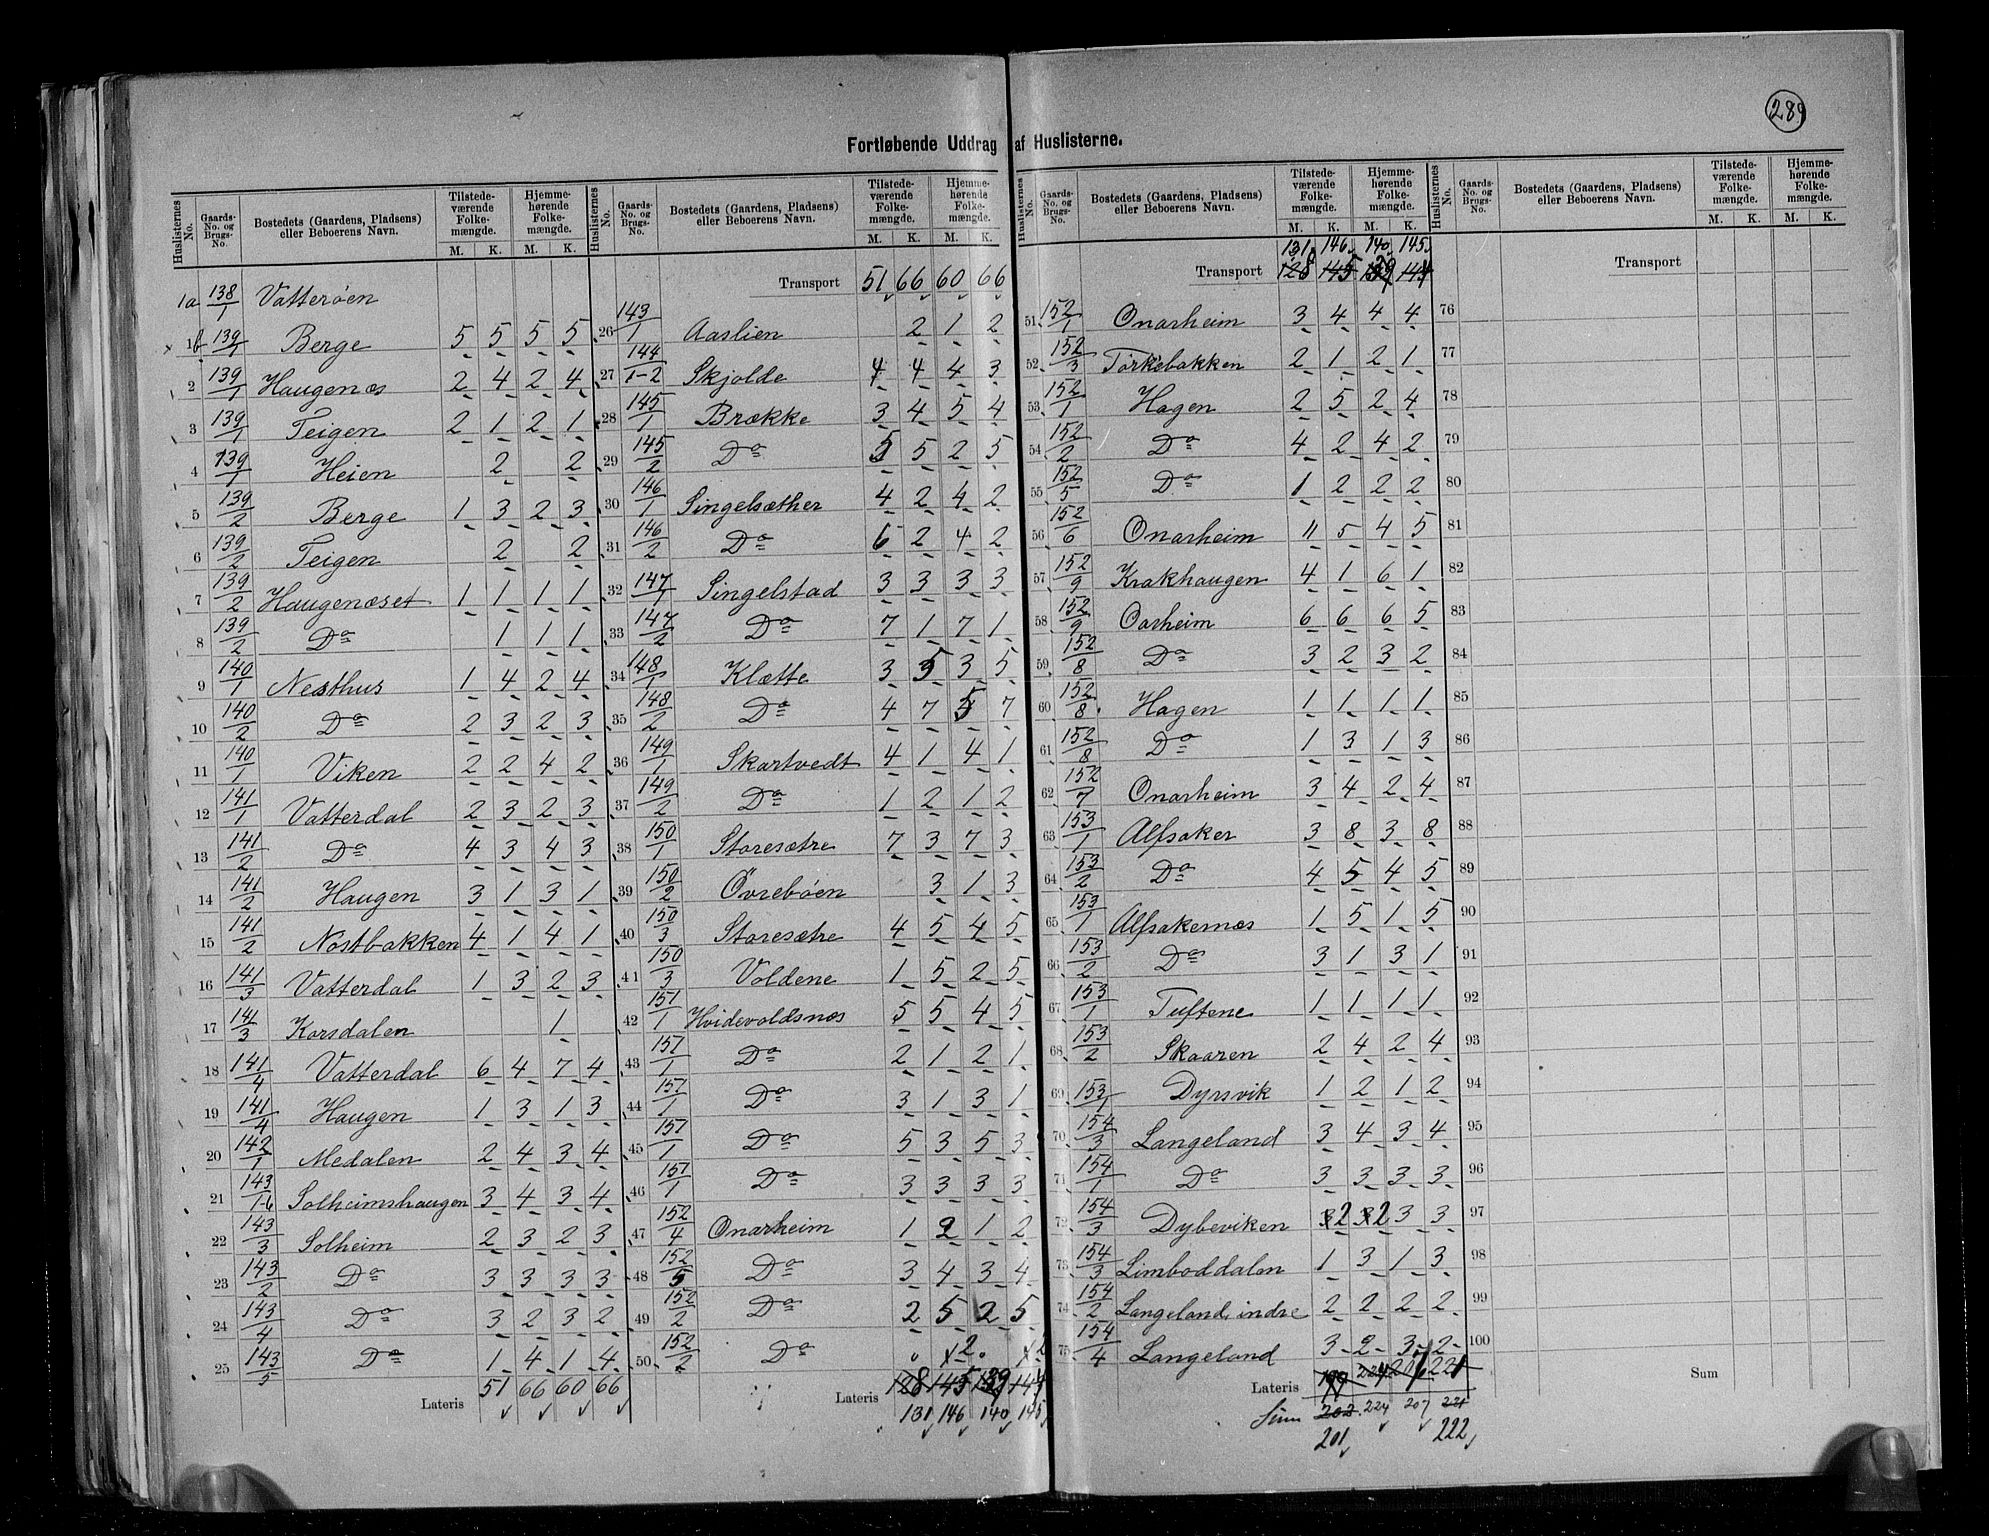 289
Fortløbende Uddrag af Huslisterne.
Huslisternes No. Gaards-No. og Brugs-No. Bostedets (Gaardens, Pladsens) eller Beboerens Navn. Tilstedeværende Folkemængde. M. K. Hjemmehørende Folkemængde. M. K.
1a 138/1 Vatterøen
1b 139/1 Berge 5 5 5 5
2 139/1 Haugenæs 2 4 2 4
3 139/1 Teigen 2 1 2 1
4 139/1 Heien 2 2
5 139/2 Berge 1 3 2 3
6 139/2 Teigen 2 2
7 139/2 Haugenæset 1 1 1 1
8 139/2 Do 1 1 1
9 140/1 Nesthus 1 4 2 4
10 140/2 Do 2 3 2 3
11 140/1 Viken 2 2 4 2
12 141/1 Vatterdal 2 3 2 3
13 141/2 Do 4 3 4 3
14 141/2 Haugen 3 1 3 1
15 141/2 Nøstbakken 4 1 4 1
16 141/3 Vatterdal 1 3 2 3
17 141/3 Korsdalen 1
18 141/4 Vatterdal 6 4 7 4
19 141/4 Haugen 1 3 1 3
20 142/1 Medalen 2 4 3 4
21 143/1-6 Solheimshaugen 3 4 3 4
22 143/3 Solheim 2 3 2 3
23 143/2 Do 3 3 3 3
24 143/4 Do 3 2 3 2
25 143/5 Do 1 4 1 4
Lateris 51 66 60 66
Huslisternes No. Gaards-No. og Brugs-No. Bostedets (Gaardens, Pladsens) eller Beboerens Navn. Tilstedeværende Folkemængde. M. K. Hjemmehørende Folkemængde. M. K.
Transport 51 66 60 66
26 143/1 Aaslien 2 1 2
27 144/1-2 Skjolde 4 4 4 3
28 145/1 Brække 3 4 5 4
29 145/2 Do 5 5 2 5
30 146/1 Singelsæther 4 2 4 2
31 146/2 Do 6 2 4 2
32 147/1 Singelstad 3 3 3 3
33 147/2 Do 7 1 7 1
34 148/1 Klætte 3 5 3 5
35 148/2 Do 4 7 5 7
36 149/1 Skartvedt 4 1 4 1
37 149/2 Do 1 2 1 2
38 150/1 Storesætre 7 3 7 3
39 150/2 Övrebøen 3 1 3
40 150/3 Storesætre 4 5 4 5
41 150/3 Voldene 1 5 2 5
42 151/1 Hvidevoldsnæs 5 5 4 5
43 151/1 Do 2 1 2 1
44 151/1 Do 3 1 3 1
45 151/1 Do 5 3 5 3
46 151/1 Do 3 3 3 3
47 152/4 Onarheim 1 2 1 2
48 152/5 Do 3 4 3 4
49 152/2 Do 2 5 2 5
50 152/2 Do 0 2 0 2
Lateris 128 145 139 144
131 146 140 145
Huslisternes No. Gaards-No. og Brugs-No. Bostedets (Gaardens, Pladsens) eller Beboerens Navn. Tilstedeværende Folkemængde. M. K. Hjemmehørende Folkemængde. M. K.
131 146 140 145
Transport 128 145 139 144
51 152/1 Onarheim 3 4 4 4
52 152/3 Torkebakken 2 1 2 1
53 152/1 Hagen 2 5 2 4
54 152/2 Do 4 2 4 2
55 152/5 Do 1 2 2 2
56 152/6 Onarheim 11 5 4 5
57 152/9 Krakhaugen 4 1 6 1
58 152/9 Oarheim 6 6 6 5
59 152/8 Do 3 2 3 2
60 152/8 Hagen 1 1 1 1
61 152/8 Do 1 3 1 3
62 152/7 Onarheim 3 4 2 4
63 153/1 Alfsaker 3 8 3 8
64 153/2 Do 4 5 4 5
65 153/1 Alfsakernæs 1 5 1 5
66 153/2 Do 3 1 3 1
67 153/1 Tuftene 1 1 1 1
68 153/2 Skaaren 2 4 2 4
69 153/1 Dyrsvik 1 2 1 2
70 154/3 Langeland 3 4 3 4
71 154/1 Do 3 3 3 3
72 154/3 Dybeviken 2 2 3 3
73 154/3 Limboddalen 1 3 1 3
74 154/2 Langeland, indre 2 2 2 2
75 154/4 Langeland 3 2 3 2
Lateris
Sum 202 224 207 221
201 222
Huslisternes No. Gaards-No. og Brugs-No. Bostedets (Gaardens, Pladsens) eller Beboerens Navn. Tilstedeværende Folkemængde. M. K. Hjemmehørende Folkemængde. M. K.
Transport
76
77
78
79
80
81
82
83
84
85
86
87
88
89
90
91
92
93
94
95
96
97
98
99
100
Sum